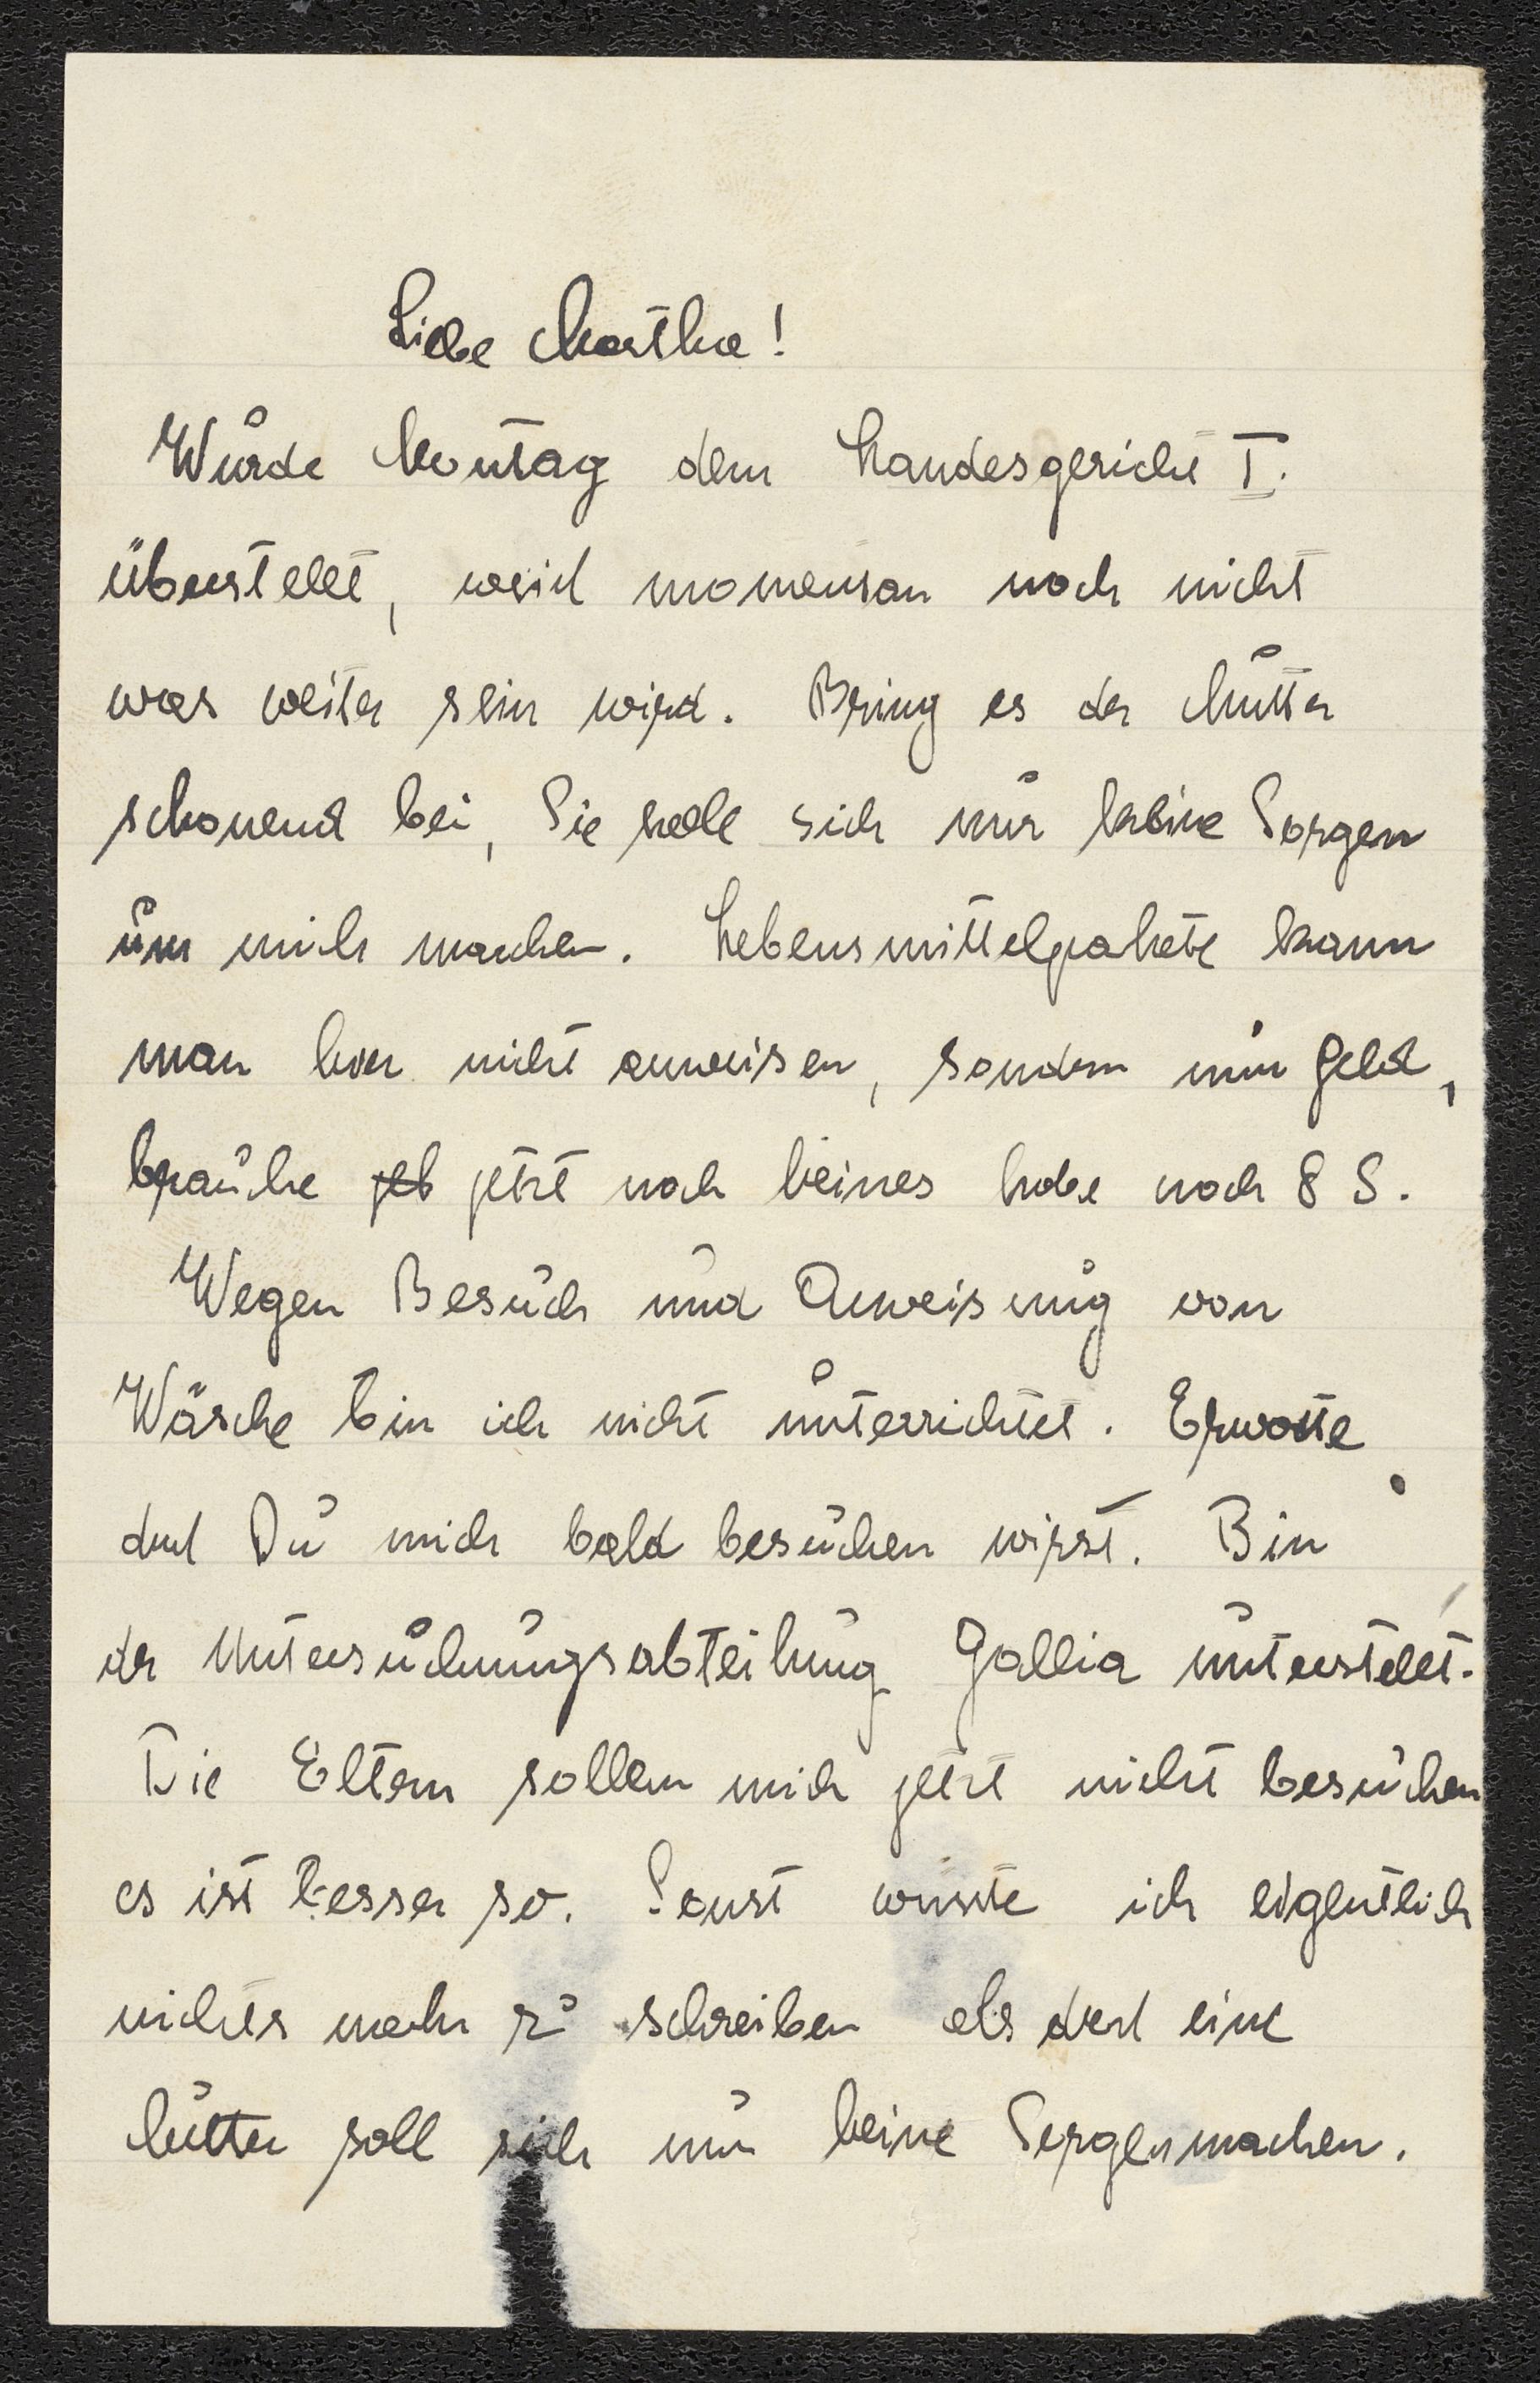 Liebe Martha!
Wurde Montag dem Landesgericht I.
überstellt, weiß momentan noch nicht
was weiter sein wird. Bring es der Mutter
schonend bei, Sie solle sich nur keine Sorgen
um mich machen. Lebensmittelpakete kann
man hier nicht anweisen, sondern nur Geld,
brauche jetzt noch keines habe noch 8 S.
Wegen Besuch und Anweisung von
Wäsche bin ich nicht unterrichtet. Erwarte
daß Du mich bald besuchen wirst. Bin
der Untersuchungsabteilung Gallia unterstellt.
Die Eltern sollen mich jetzt nicht besuchen
es ist besser so. Sonst wüsste ich eigentlich
nichts mehr zu schreiben als daß eine
Mutter soll sich nur keine Sorgen machen.